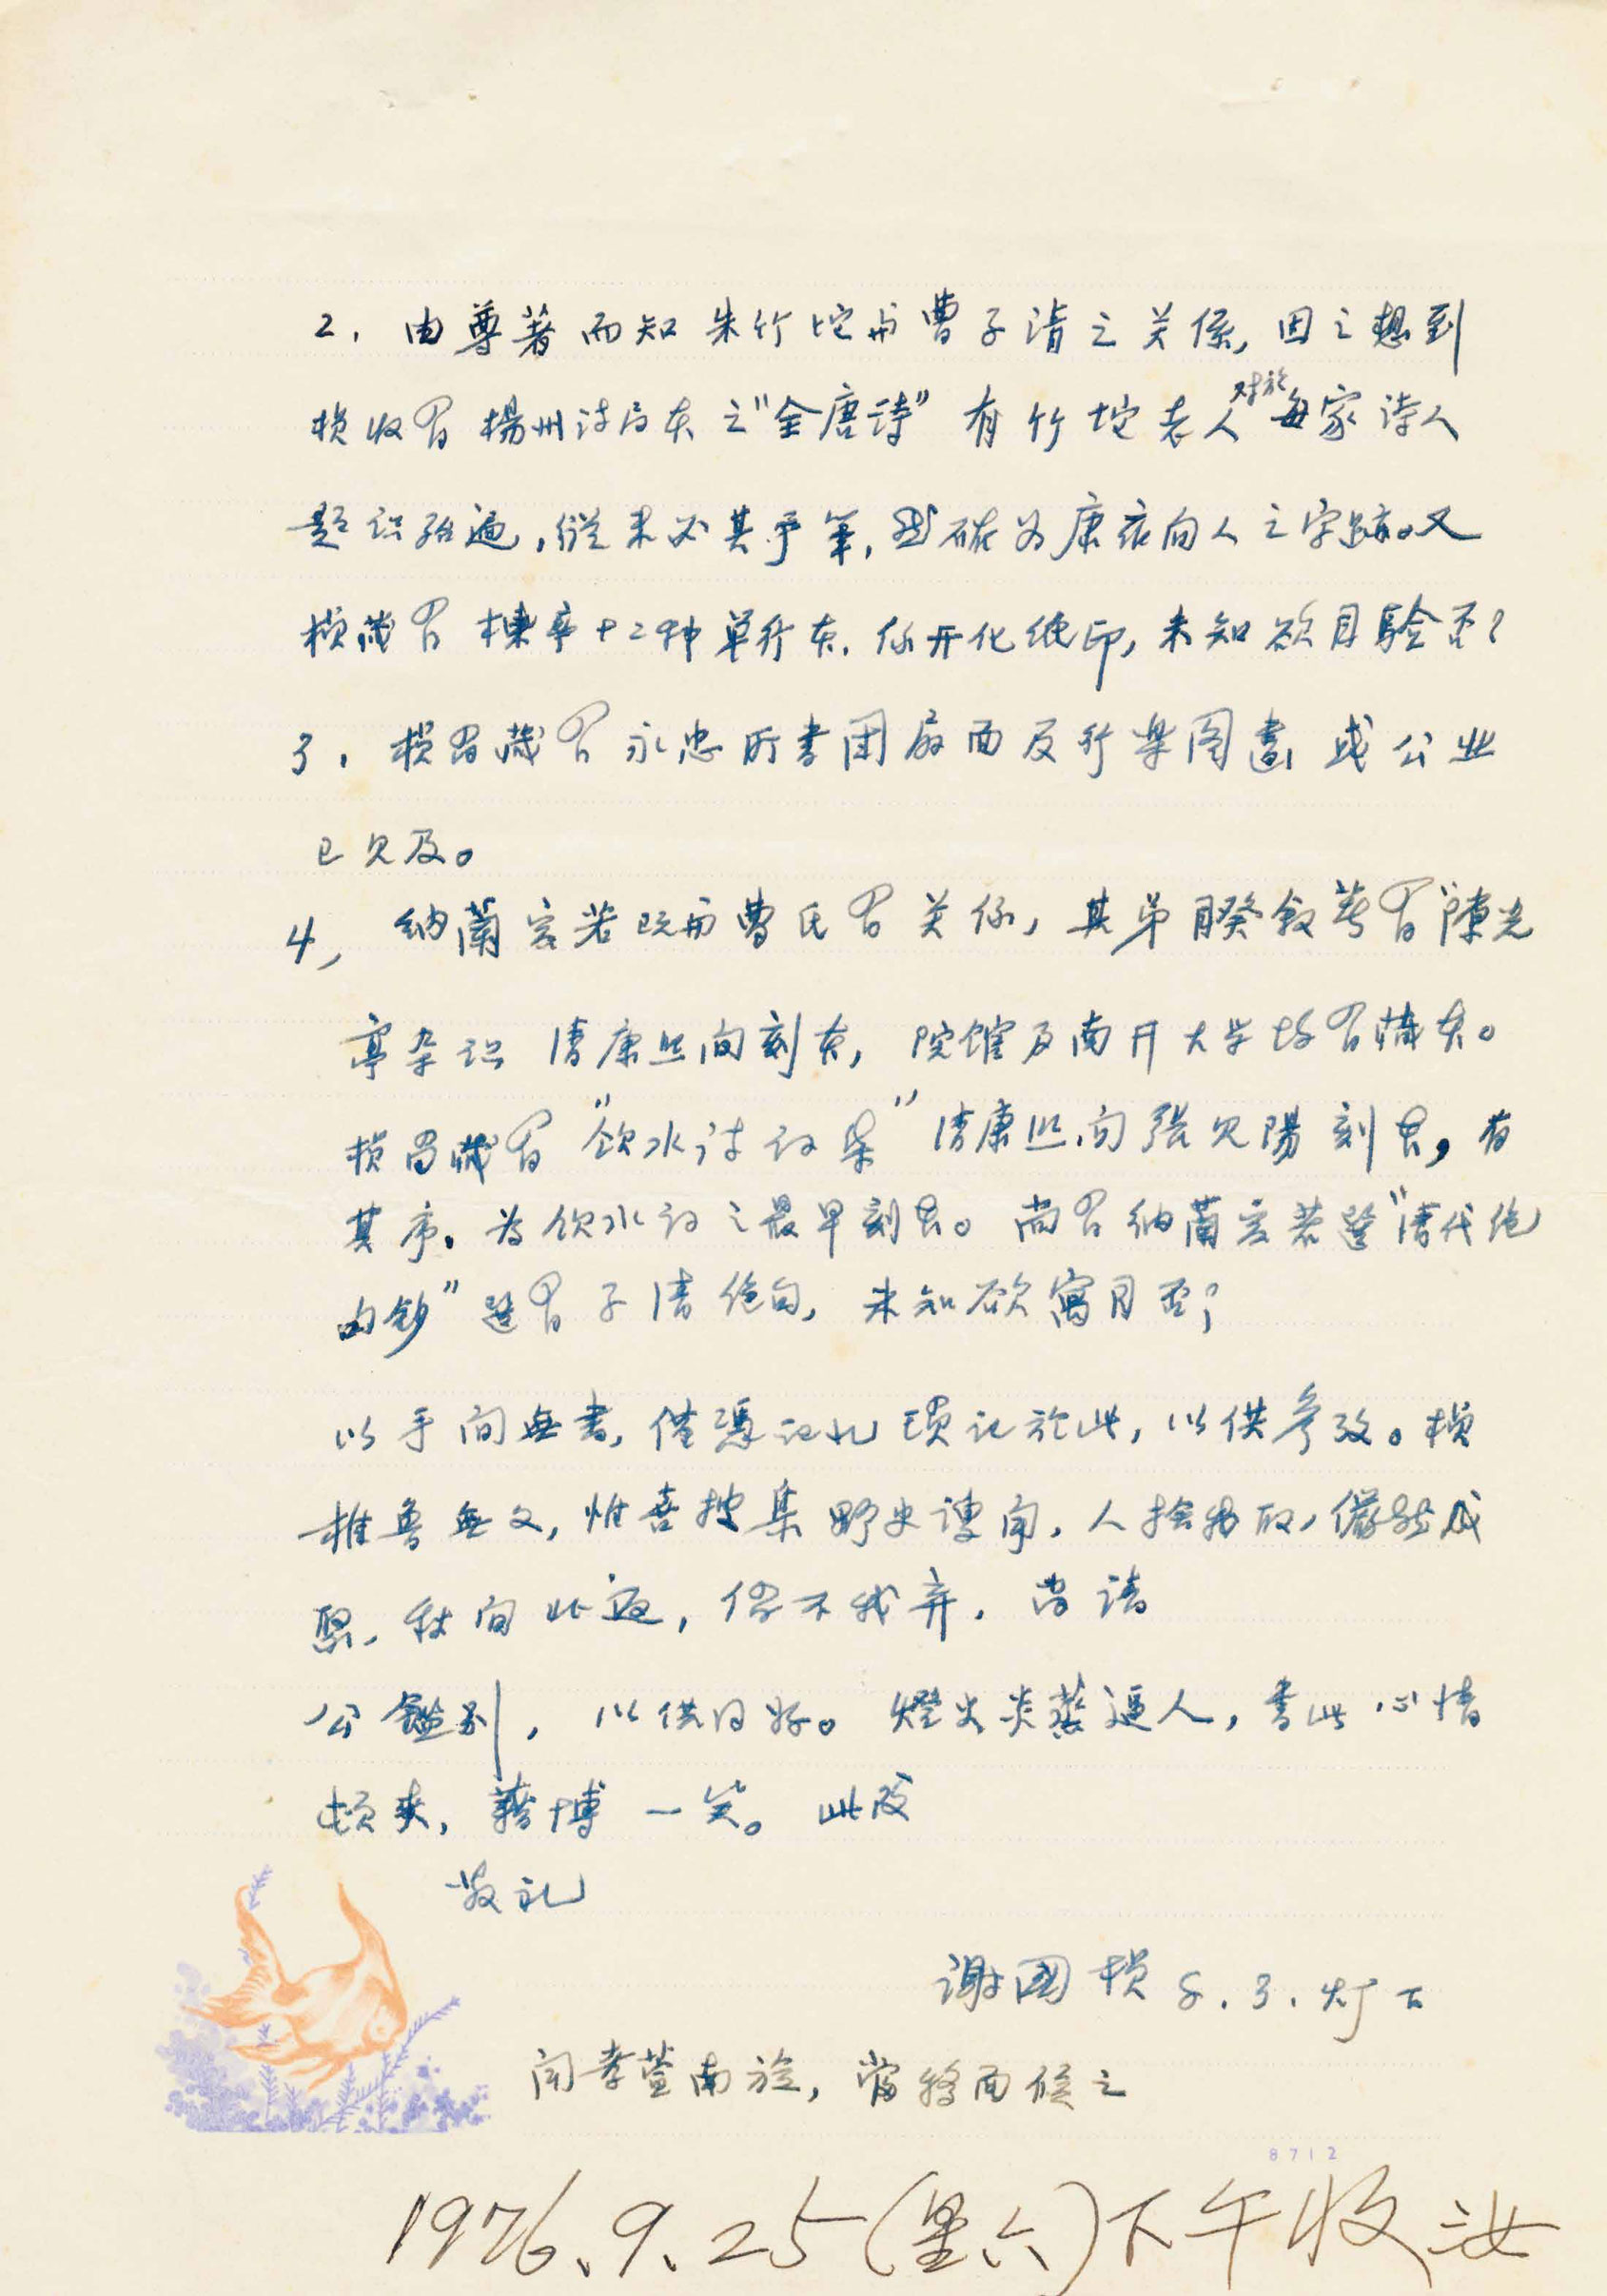 2. 由尊著而知朱竹垞与曹子清之关係,因之想到
楨收有揚州诗局本之"全唐诗"有竹垞老人对於每家诗人
题识殆遍,纵未必其手笔,然確为康熙间人之字跡。又
楨藏有楝亭十二种单行本.係开化纸印,未知欲目验否?
3. 楨曾藏有永忠所书团扇面及行樂图畫或公业
已见及。
4、纳蘭容若既与曹氏有关係,其弟揆叙著有"隙光
亭杂识 清康熙间刻本,院馆及南开大学均有藏本。
楨曾藏有"饮水诗词集"清康熙间张见陽刻本,有
其序.为饮水词之最早刻本。尚有纳蘭容若选"清代绝
句钞"选有子清绝句,未知欲寓目否;
以手间無书,僅憑记忆 琐记於此,以供参攷。楨
椎鲁無文,惟喜搜集野史谭闻.人捨我取,儼然成
聚.秋间北返,倘不我弃.尚请
公鑑别,以供同好。燈火炎蒸逼人,书此心情
顿爽,藉博一笑。此致
敬礼
谢國楨 8.3.灯下
闻孝萱南旋,當将面候之
8712
1976.9.25(星六)下午收 汝